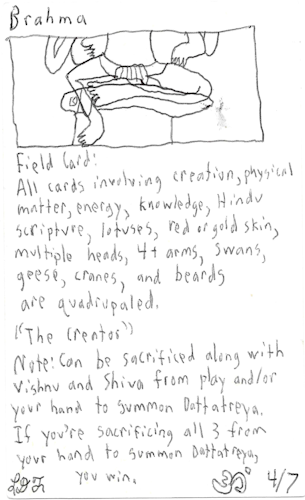 Brahma
Field Card:
All cards involving creation, physical
matter, energy, knowledge, Hindu
scripture, lotuses, red or gold skin,
multiple heads, 4+ arms, swans,
geese, cranes, and beards
are quadrupaled.
("The Creator")
Note: Can be sacrificed along with
Vishnu and Shiva from play and/or
your hand to summon Dattatreya.
If you're sacrificing all 3 from
your hand to summon Dattatreya,
you win.
4/7